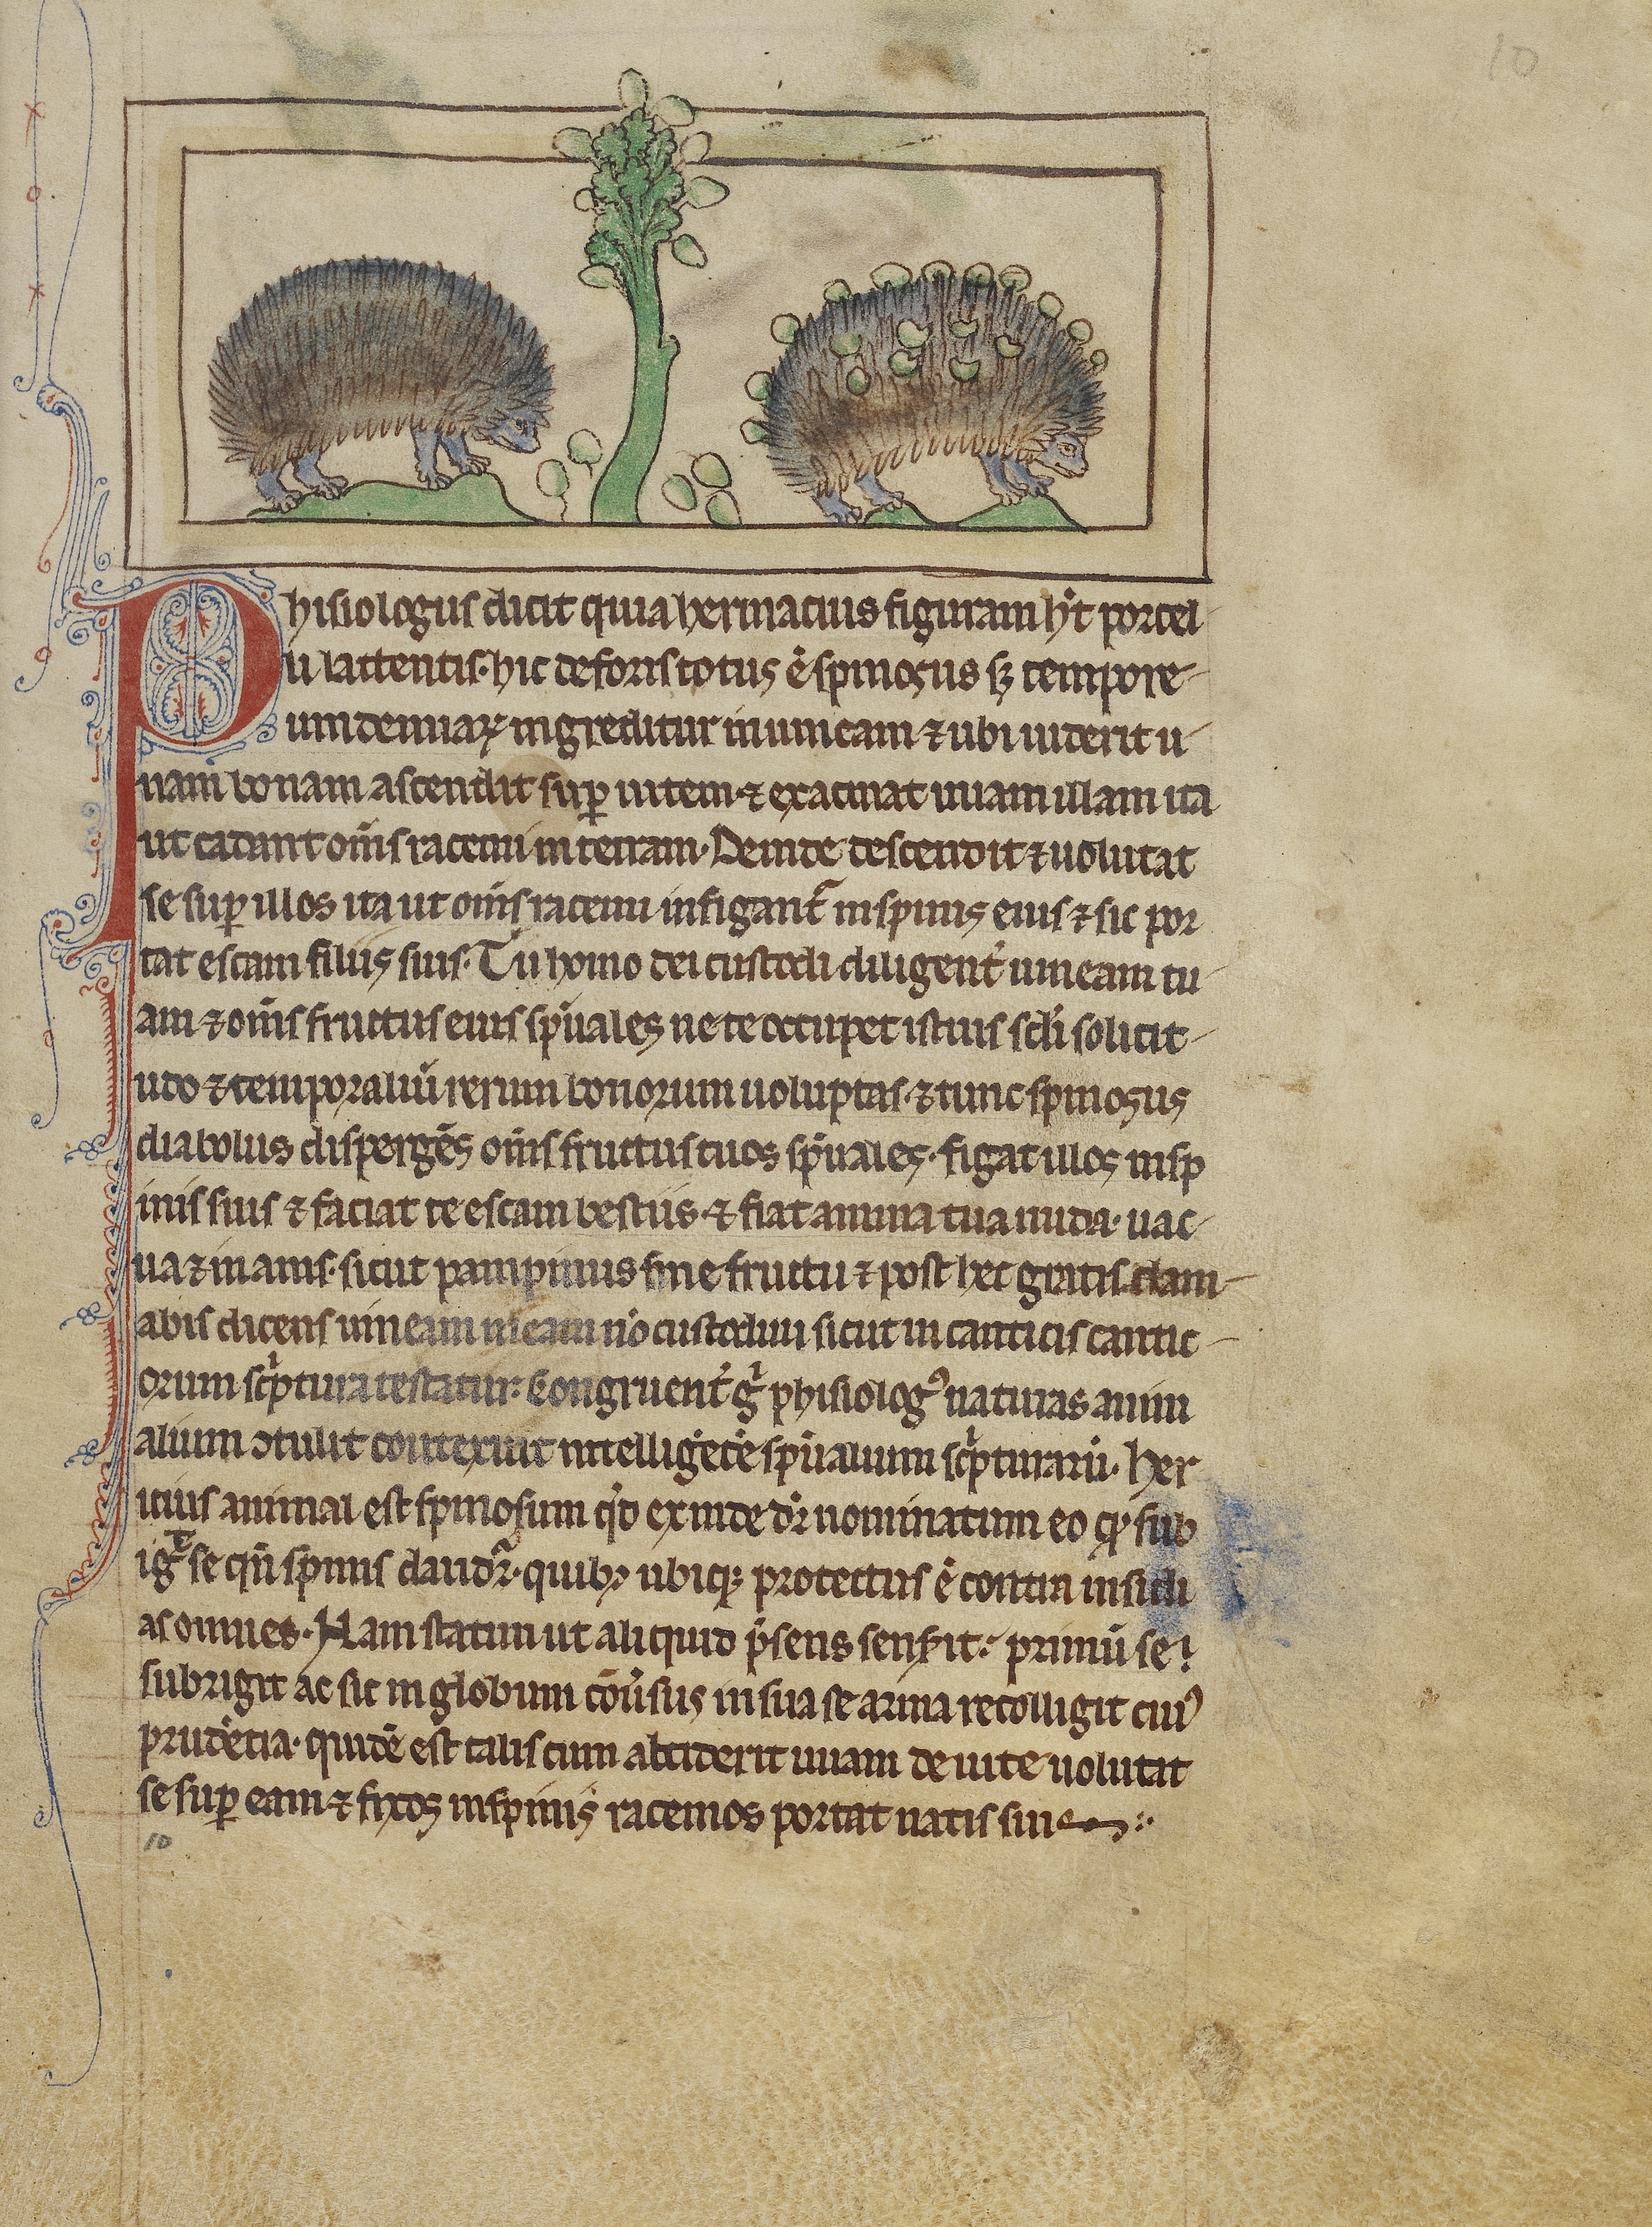 10
Phisiologus dicit quia herinacius figuram hꝫt porcel-
li lattentis. hic deforis totus ē spinosus sꝫ tempore-
uindemiaꝝ ingreditur in uineam ⁊ ubi uiderit u-
uam bonam ascendit suꝑ uitem ⁊ exacinat uuam illam ita
ut cadant om̅s racemi in terram. Deinde descendit ⁊ uolutat
se suꝑ illos ita ut om̅s racemi infigant᷑ in spinis eius ⁊ sic por
tat escam filiis suis. Tu homo dei custodi diligent̾ uineam tu-
am ⁊ om̅s fructus eius sp̅uales ne te occupet istius scl̅i solicit-
udo ⁊ temporaliū rerum bonorum uoluptas. ⁊ tunc spinosus
diabolus dispergēs om̅s fructus tuos sp̅uales. figat illos in sp
inis suis ⁊ faciat te escam bestiis. ⁊ fiat anima tua nuda. uac-
ua ⁊ inanis. sicut pampinus sine fructu ⁊ post hec gratis clam-
abis dicens uineam meam nō custodiui sicut in canticis cantic-
orum scͥptura testatur. Congruent̾ gͥ phisiologꝰ naturas anim
alium ↄtulit contexuit intelligētie sp̅ualium scͥpturarū. Her
icius animal est spinosum qd̓ exinde dr̅ nominatum eo ꝙ sub
igͥt se qn̅ spinis claudit᷑. quibꝫ ubiqꝫ protectus ē contra insidi
as omnes. Nam statim ut aliquid p̅sens senserit. primū se
subrigit ac sic in globum cōu̾sus in sua se arma recolligit cuiꝰ
prudētia quidē est talis cum absciderit uuam de uite uolutat
se suꝑ eam ⁊ fixos in spinis racemos portat natis suis
10